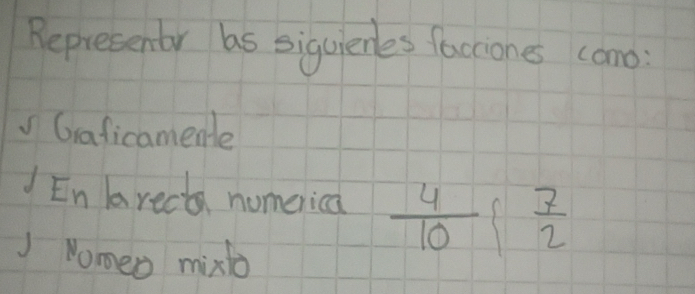 Representar las siguientes facciones como:
√ Graficamente
√ En la recta numerica 4/10 { 7/2
√ Númeo mixto